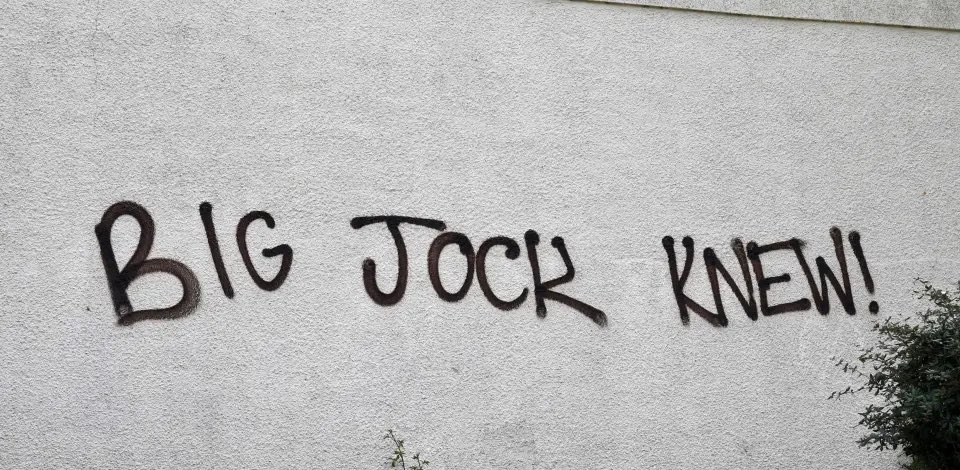 BIG JOCK KNEW!